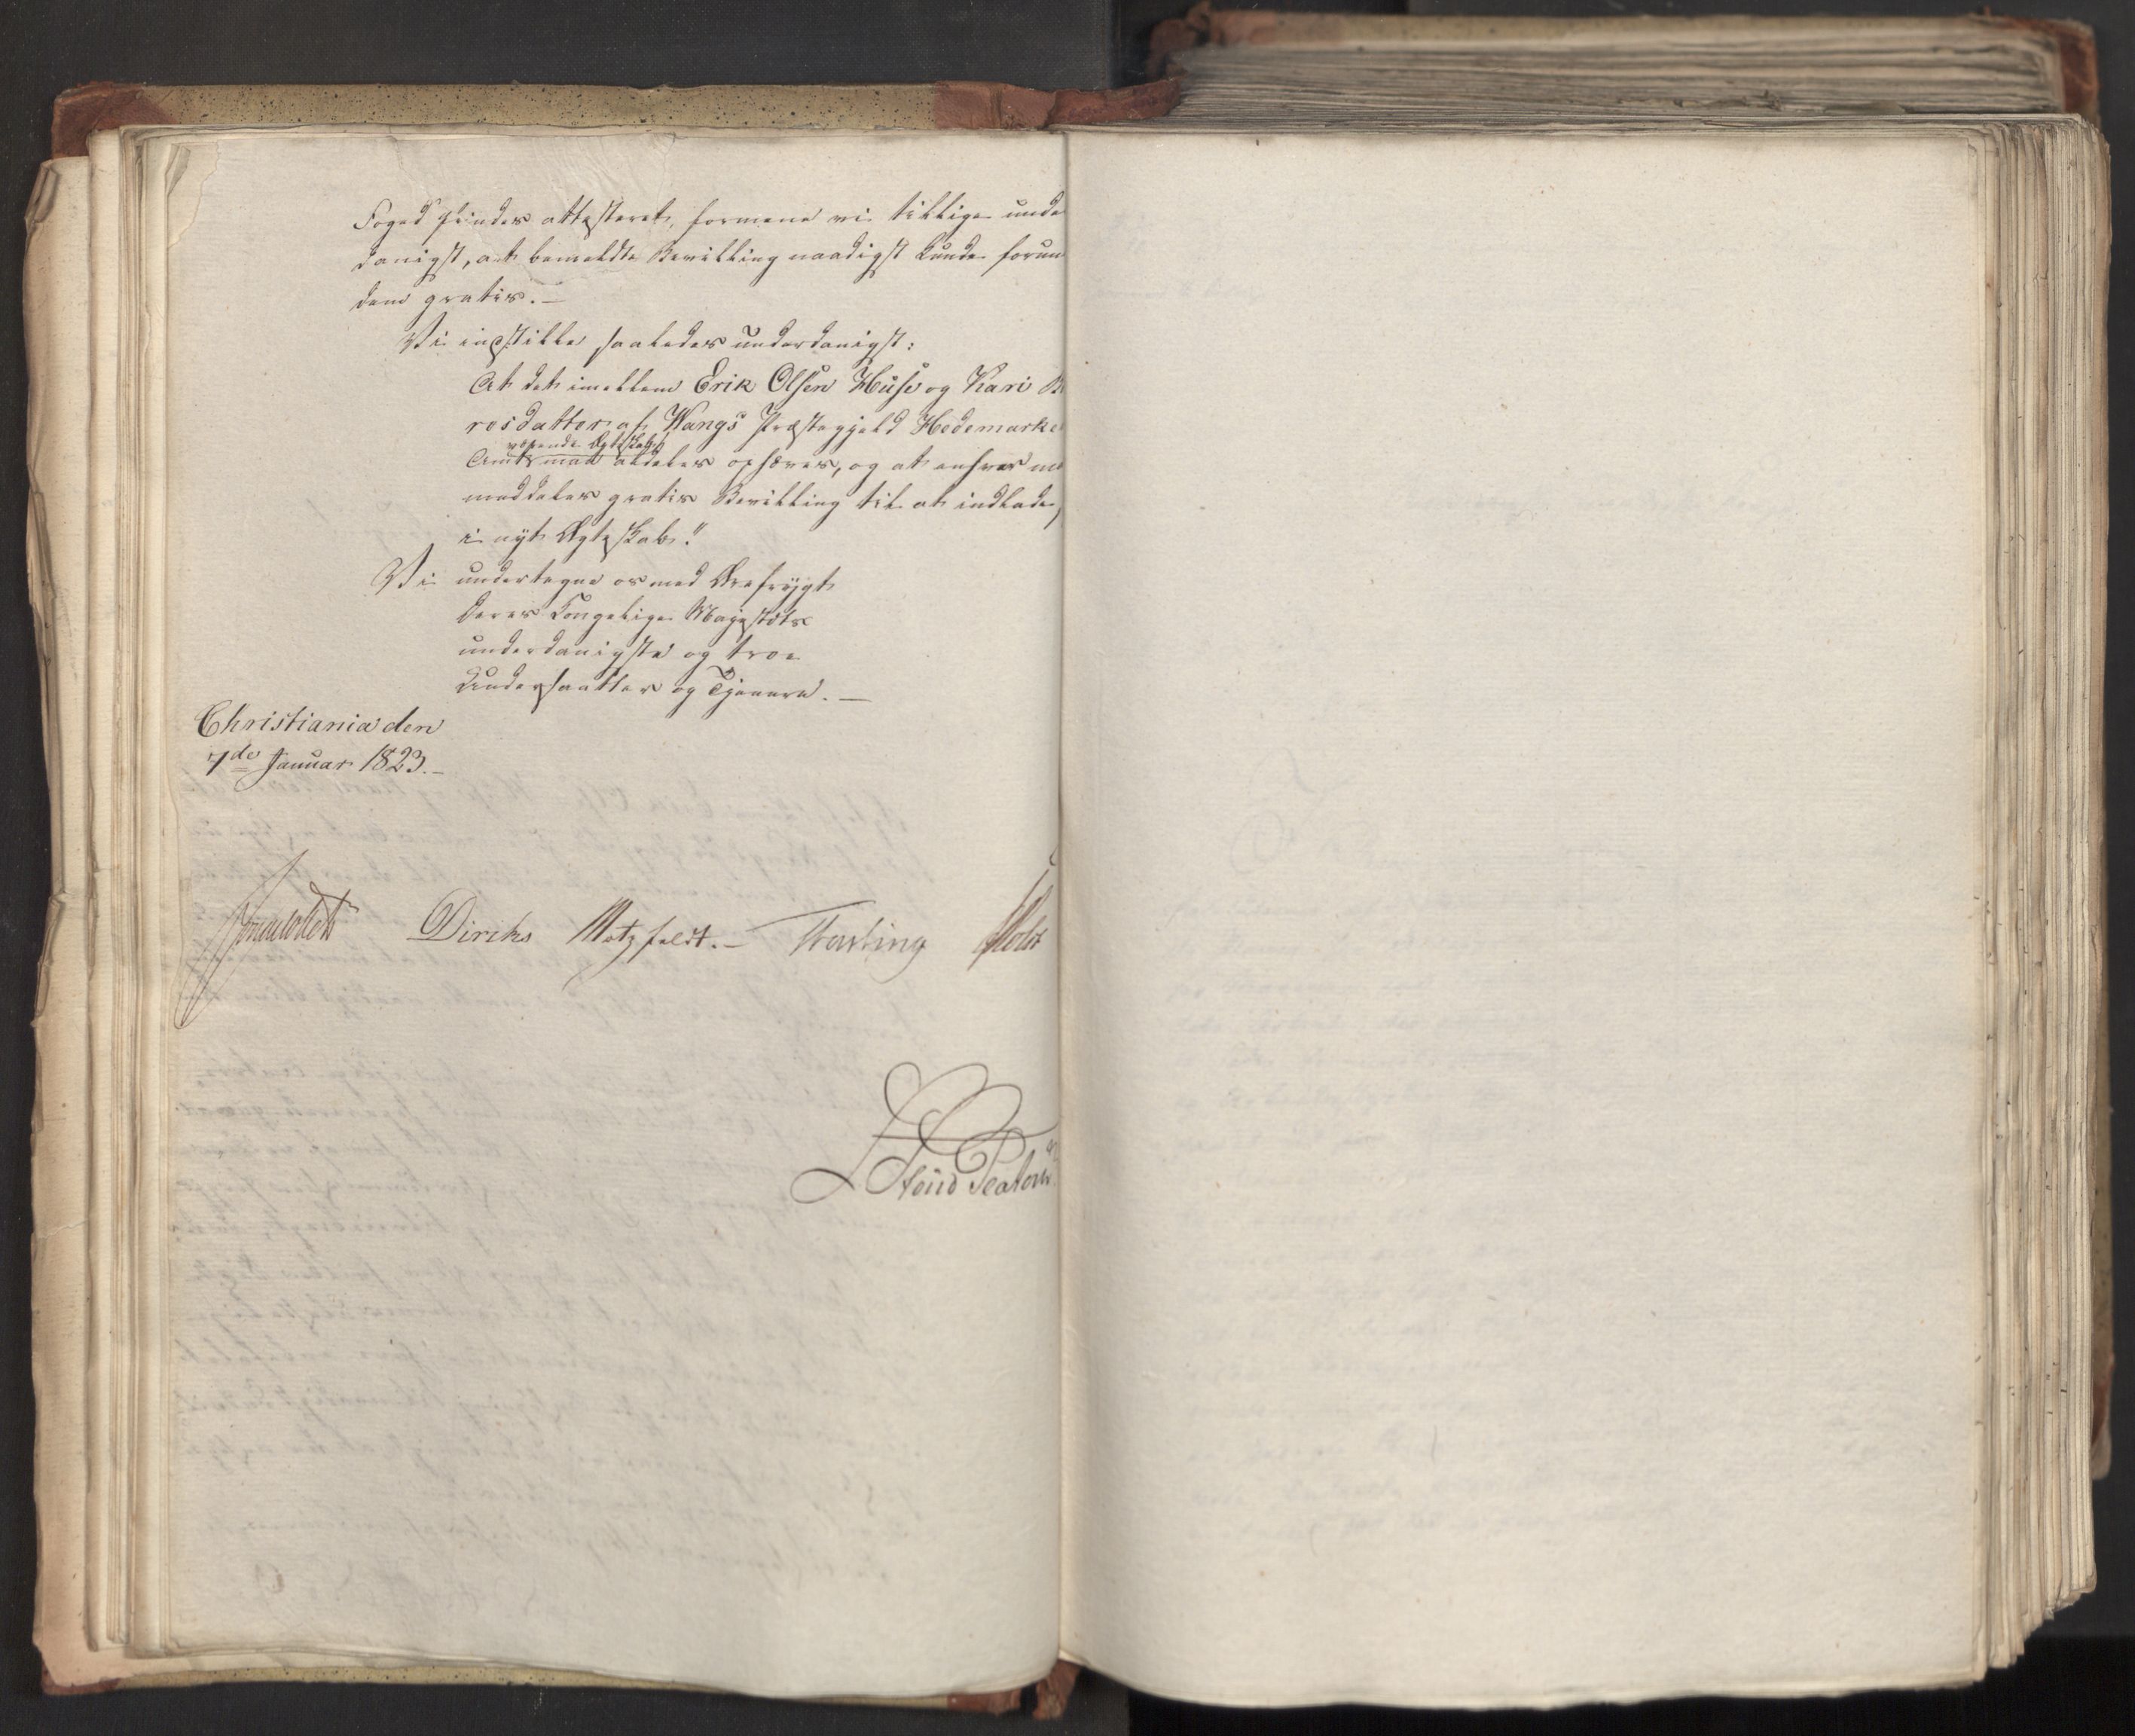 Foged findes attesteret, formene vi tillige unde
danigst, at bemeldte Bevilling naadigst kunde forun
dem gratis. —
Vi indstille saaledes underdanigst:
At det imellem Erik Olsen Huse og Kari
rosdatter af Wangs Præstegjeld Hedemarke
værende Ægteskab
Amt maa aldeles ophæves, og at enhver
meddeles gratis Bevilling til at indlade
i nyt Ægteskab."
Vi undertegne os med Ærefrygt
Deres Kongelige Majestæts
underdanigste og troe
Undersaatter og Tjenere. —
Christiania den
7de Januar 1823. —
Diriks Motzfeldt. —